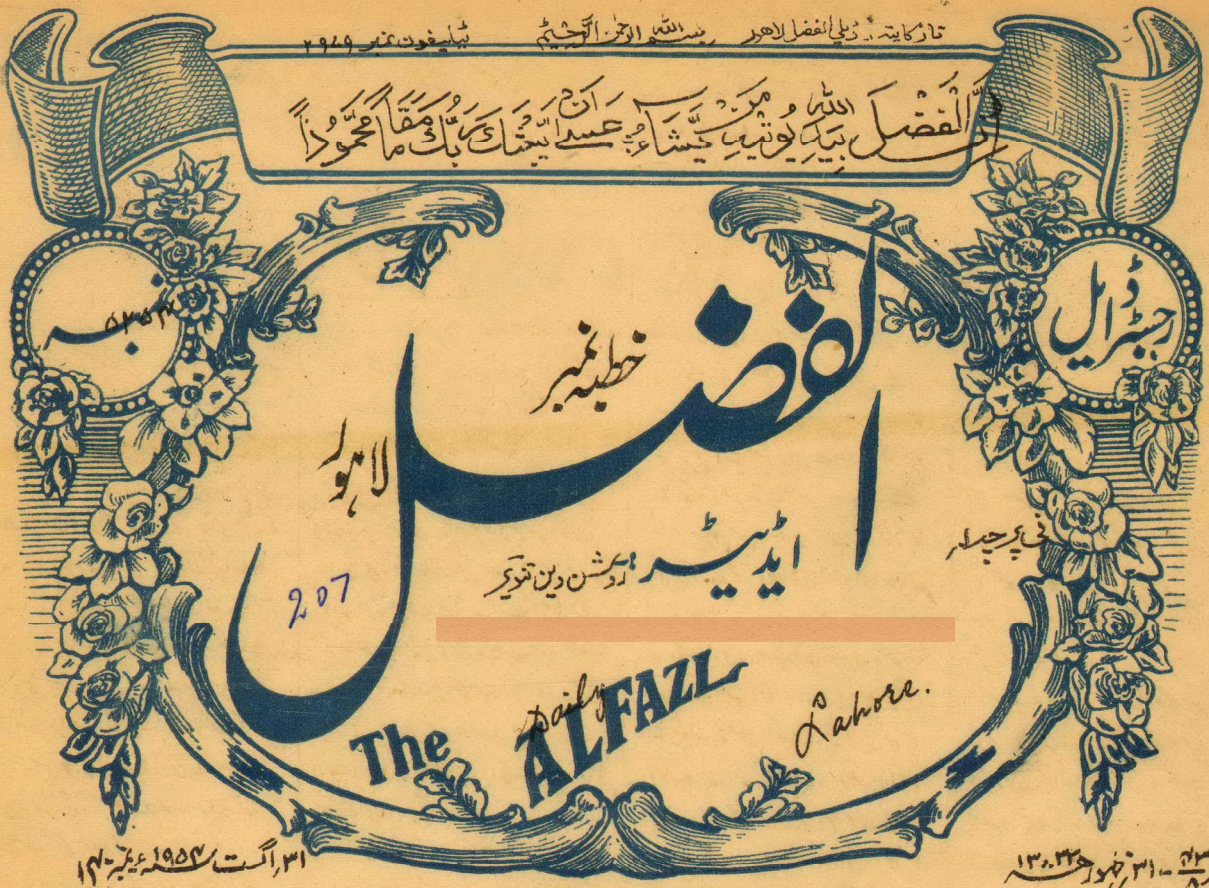 تار کا پتہ: ڈیلی الفضل لاہور بسم اللہ الرحمن الرحیم ٹیلیفون نمبر ۲۹۴۹
اِنَّ الْفَضْلَ بِیَدِ اللّٰہِ یُوْتِیْہِ مَنْ یَّشَآءُ عَسٰی اَنْ یَّبْعَثَکَ رَبُّکَ مَقَامًا مَّحْمُوْدًا
رجسٹرڈ ایل
نمبر ۵۲۵۴
الفضل
خطبہ نمبر
لاہور
ایڈیٹر: روشن دین تنویر
فی پرچہ ۱ر
207
The Daily ALFAZL Lahore.
۳۱ ظہور
۳۱ اگست ۱۹۵۴ء نمبر ۱۴۰